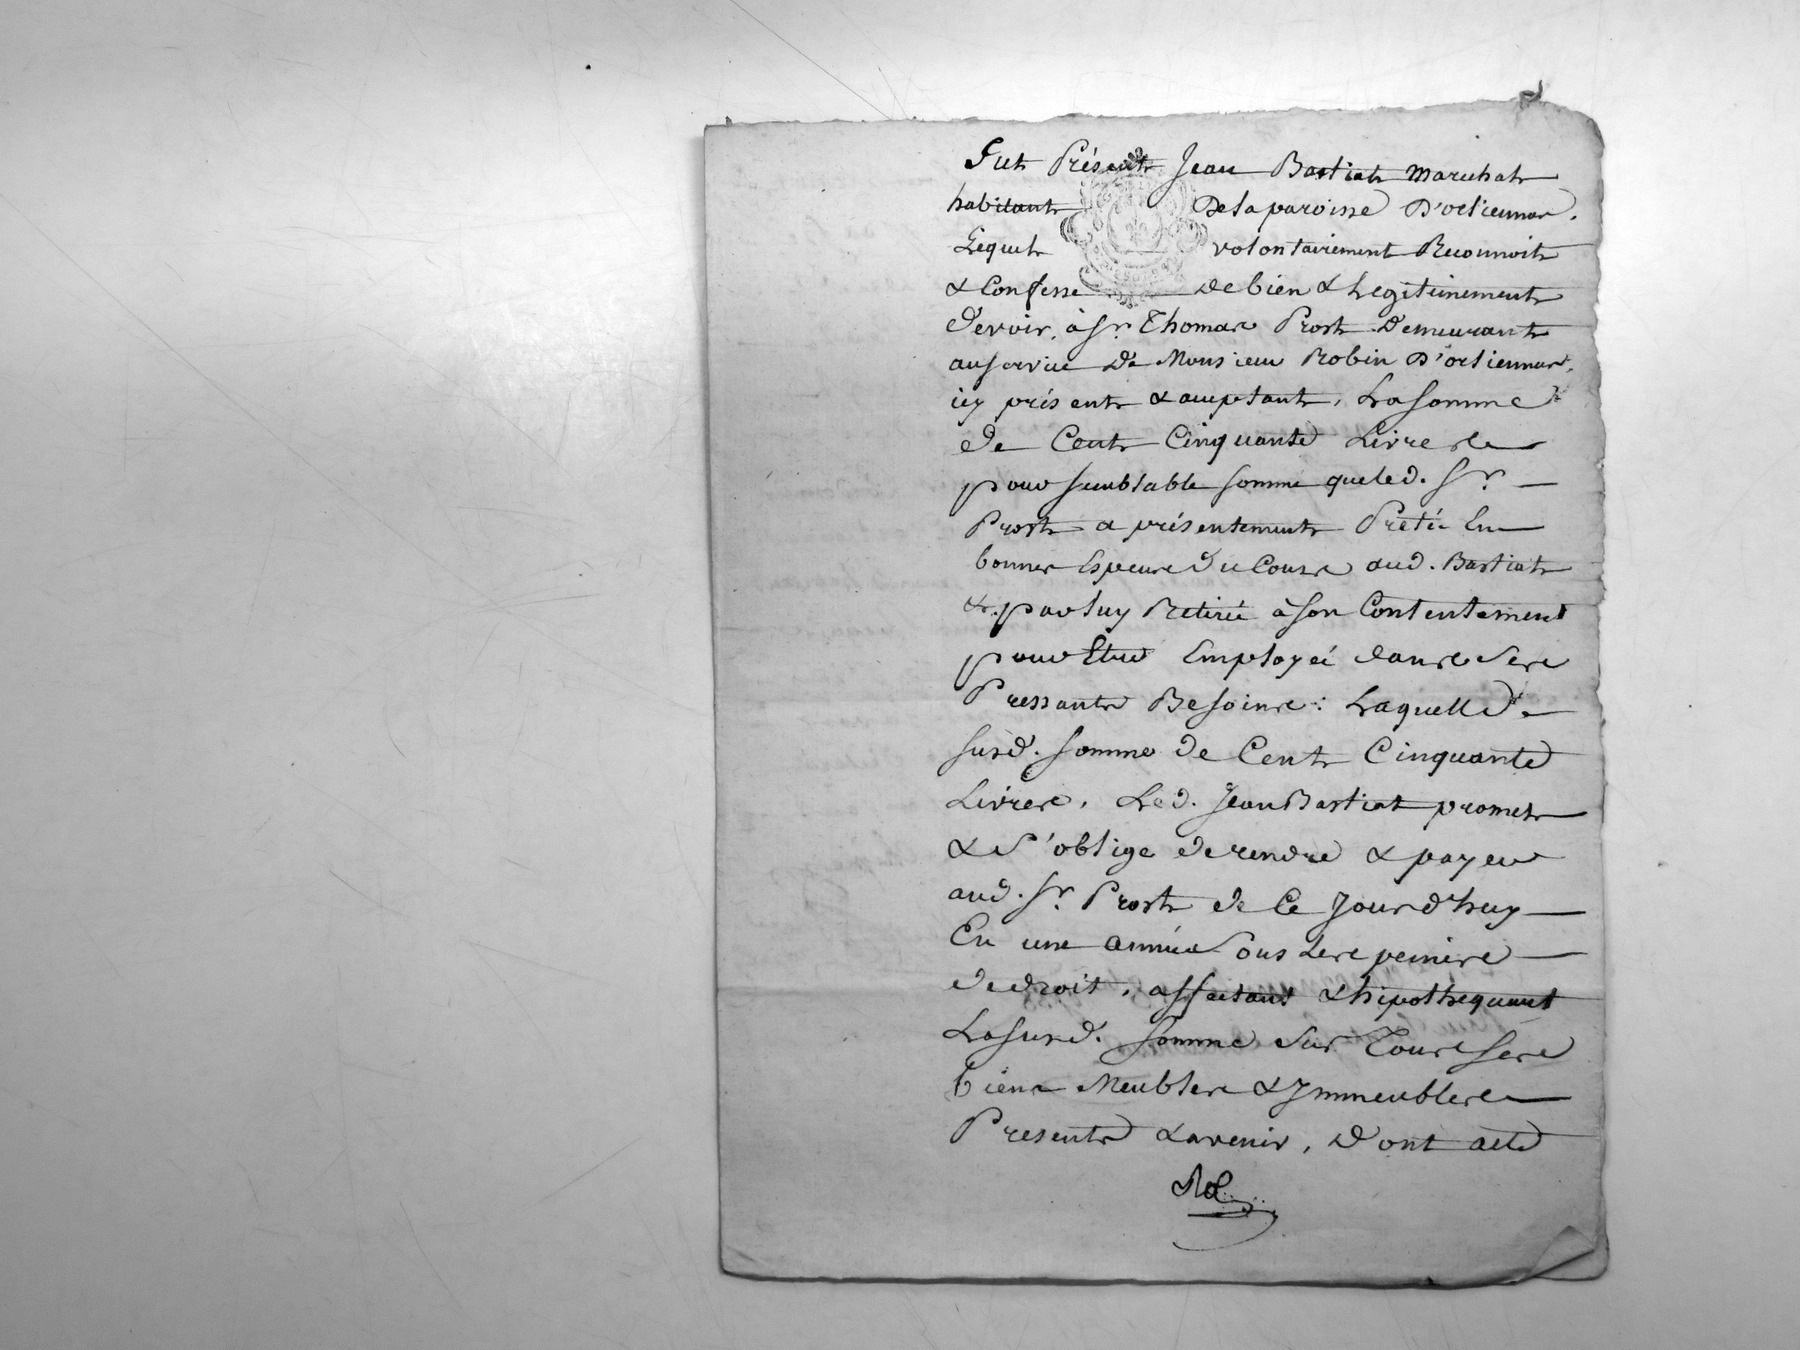 Fut Présent Jean Bastiat Marechal
habitant De la paroisse D'orliennas.
Lequel volontairement Reconnoit
& Confesse de bien & Legitimement
devoir, à Sr. Thomas Prost Demeurant
au service De Monsieur Robin D'orliennas,
icy présent & acceptant, La somme
de Cent Cinquante Livres
pour semblable somme que led. Sr.
Prost a présentement Pretée En
bonnes Especes Du Cours aud. Bastiat
& par luy Retirée à son Contentement
pour Etre Employée dans Ses
Pressants Besoins: Laquelle
susd. somme de Cent Cinquante
Livres, Led. Jean Bastiat promet
& S'oblige de rendre & payer
aud. Sr. Prost de Ce Jourd'huy
En une année Sous Les peines
de droit, affectant & hipothequant
La susd. somme Sur Tous ses
biens Meubles & Immeubles
Presents & avenir, D'ont acte